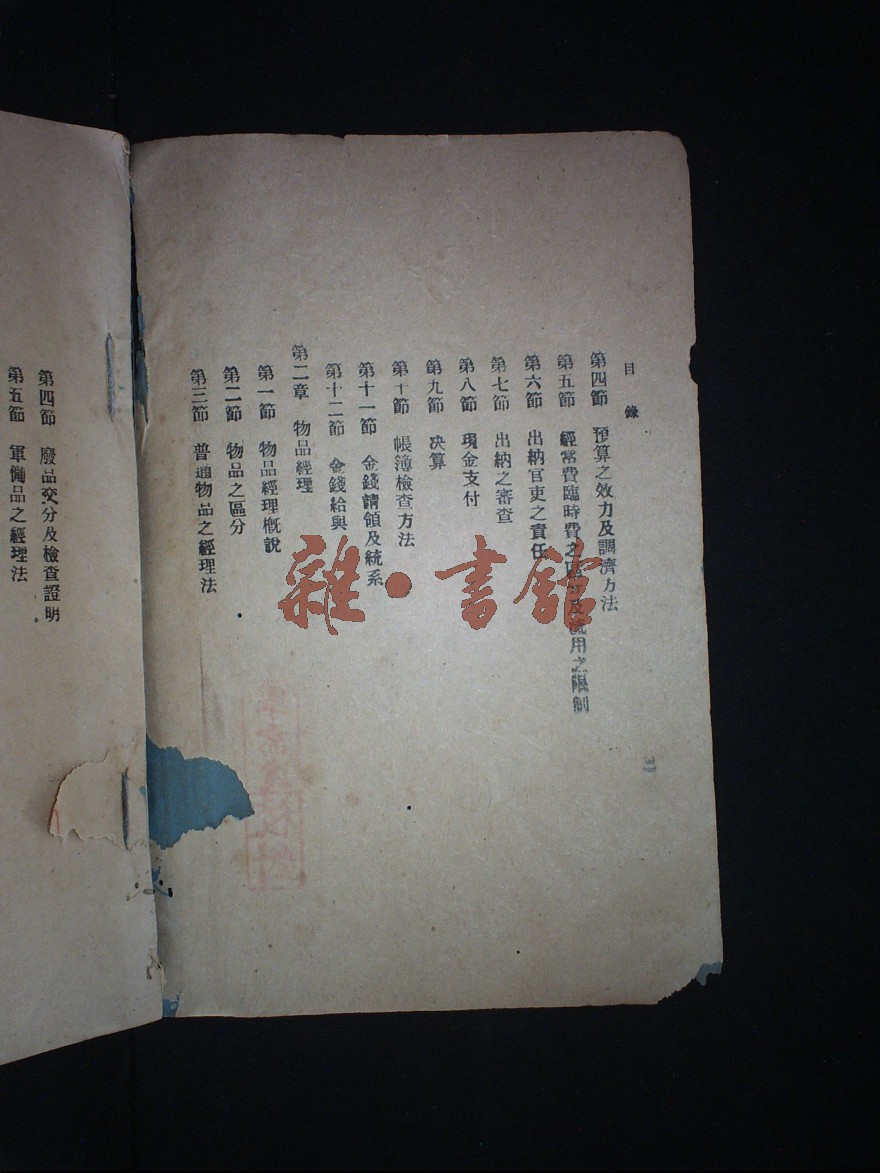 目錄
第四節 預算之效力及調濟方法
第五節 經常費臨時費之區分及流用之限制
第六節 出納官吏之責任
第七節 出納之審查
第八節 現金支付
第九節 决算
第十節 帳簿檢查方法
第十一節 金錢請領及統系
第十二節 金錢給與
第二章 物品經理
第一節 物品經理槪說
第二節 物品之區分
第三節 普通物品之經理法
第四節 廢品交分及檢查證明
第五節 軍備品之經理法
雜·書館